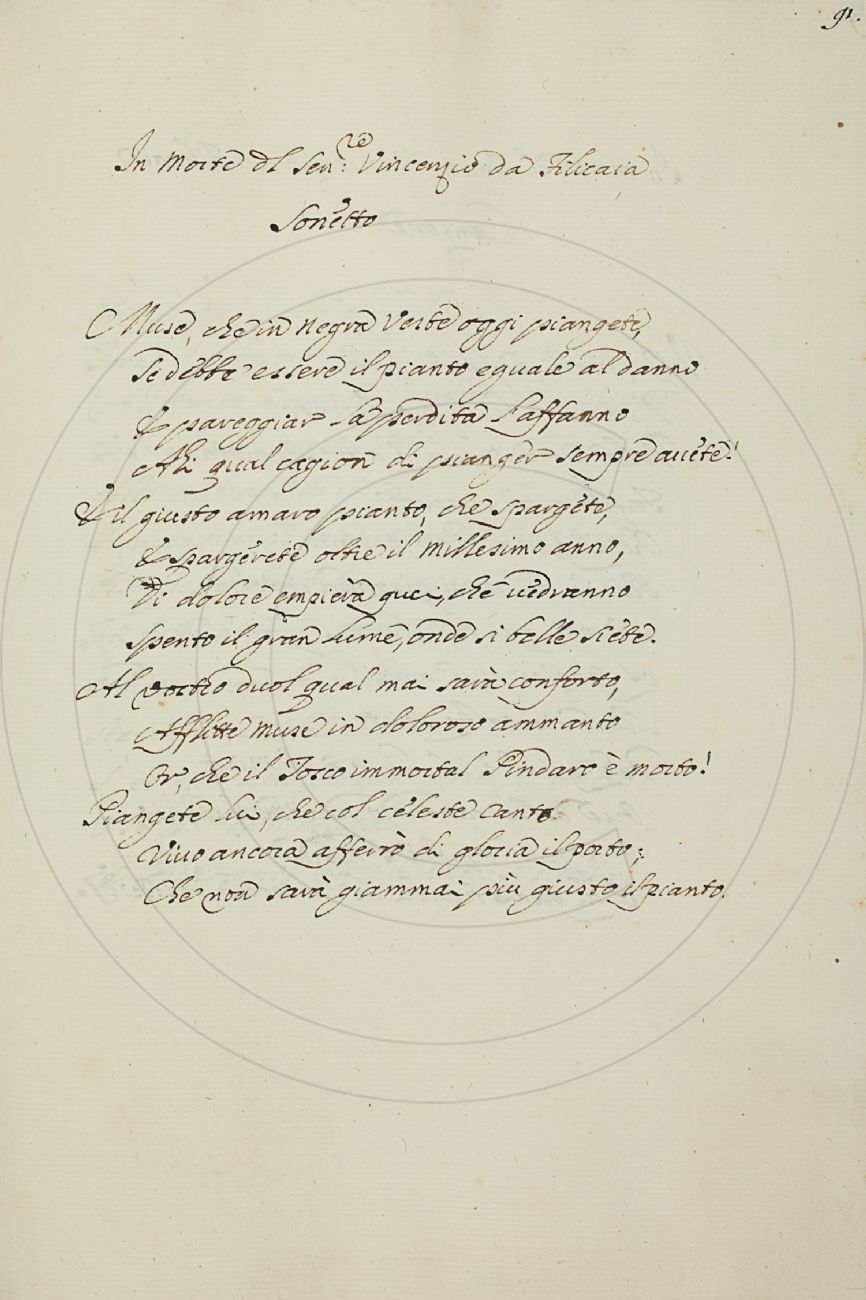 91.
In Morte del Sen:re Vincenzio da Filicaia
Sonetto
Muse, che in negra Veste oggi piangete,
Se debbe essere il pianto eguale al danno
E pareggiar La perdita L'affanno
Ahi qual cagion di pianger sempre avete!
E il giusto amaro pianto, che spargete,
E spargerete oltre il Millesimo anno,
Di dolore empierà quei, che vedranno
Spento il gran Lume, onde si belle siete.
Al vostro duol qual mai sarà conforto,
Afflitte Muse in doloroso ammanto
Or, che il Tosco immortal Pindaro è morto!
Piangete Lui, che col celeste Canto
Vivo ancora afferrò di gloria il porto;
Che non sarà giammai più giusto il pianto.